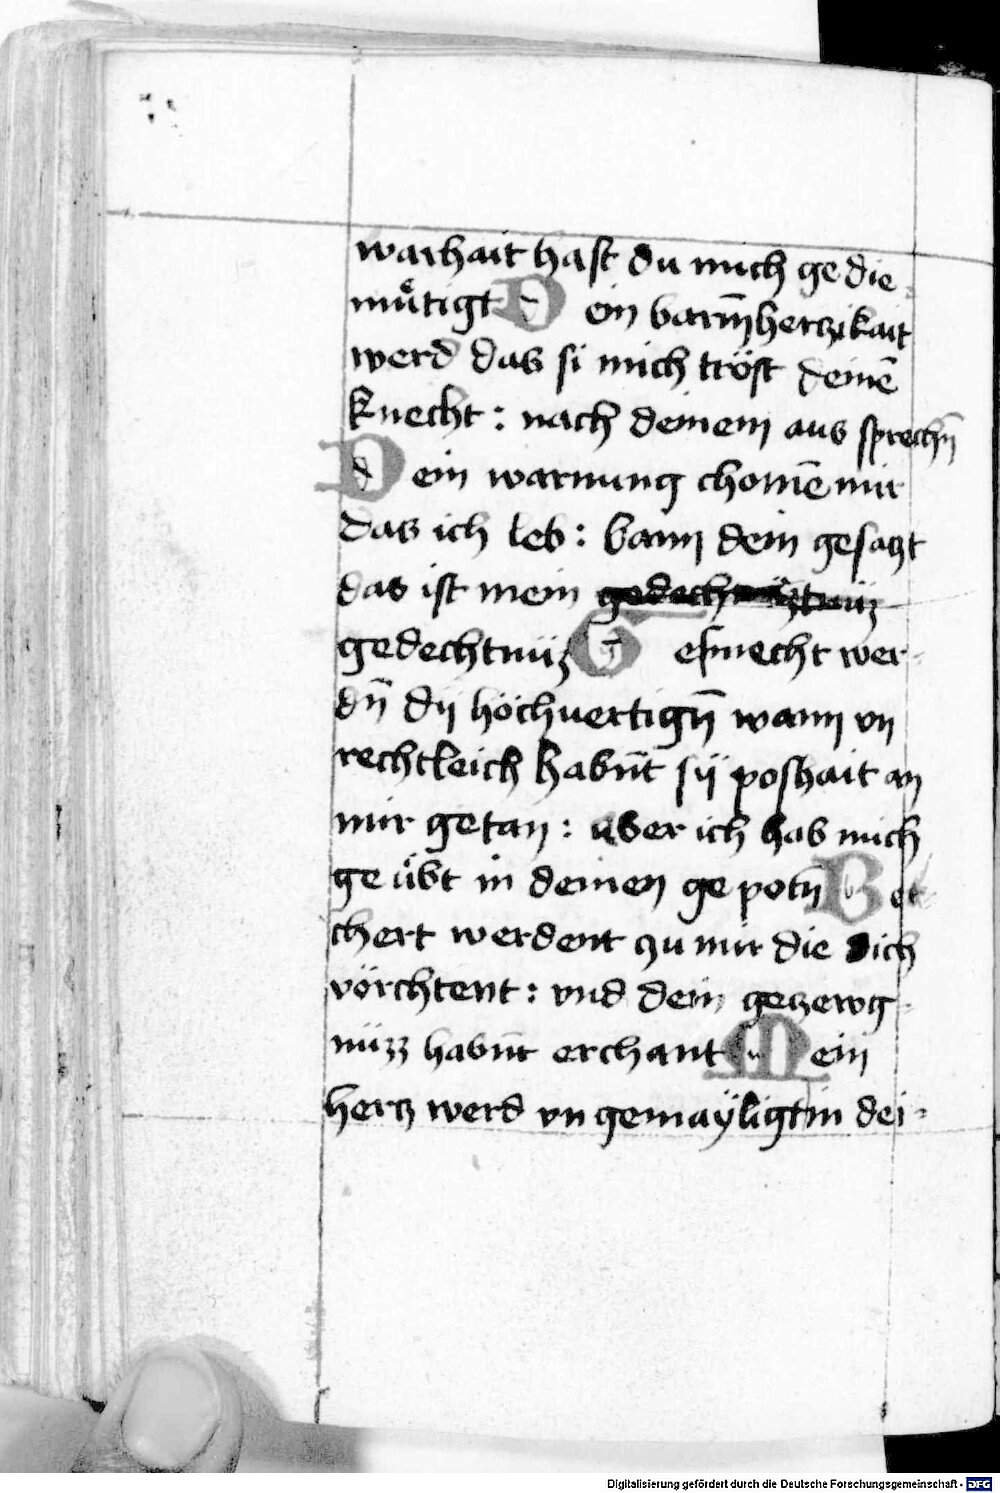 warhait hast du mich ge die-
muͤtigt Dein barm̄herczikait
werd das si mich tröst deinē
knecht: nach deinem aus sprechn̄
Dein warnung chomē mir
das ich leb: bann dein gesaczt
das ist mein
gedechtnüz Gesmecht wer-
dn̄ dij höchuertign̄ wann vn
rechtleich habn̄t sij poshait an
mir getan: aber ich hab mich
ge uͤbt in deinen ge potn̄ Bet
chert werdent zu mir die dich
vörchtent: vnd dein geczewg-
nüzz habn̄t erchant Mein
hercz werd vn gemaÿligt in dei-
Digitalisierung gefördert durch die Deutsche Forschungsgemeinschaft - DFG